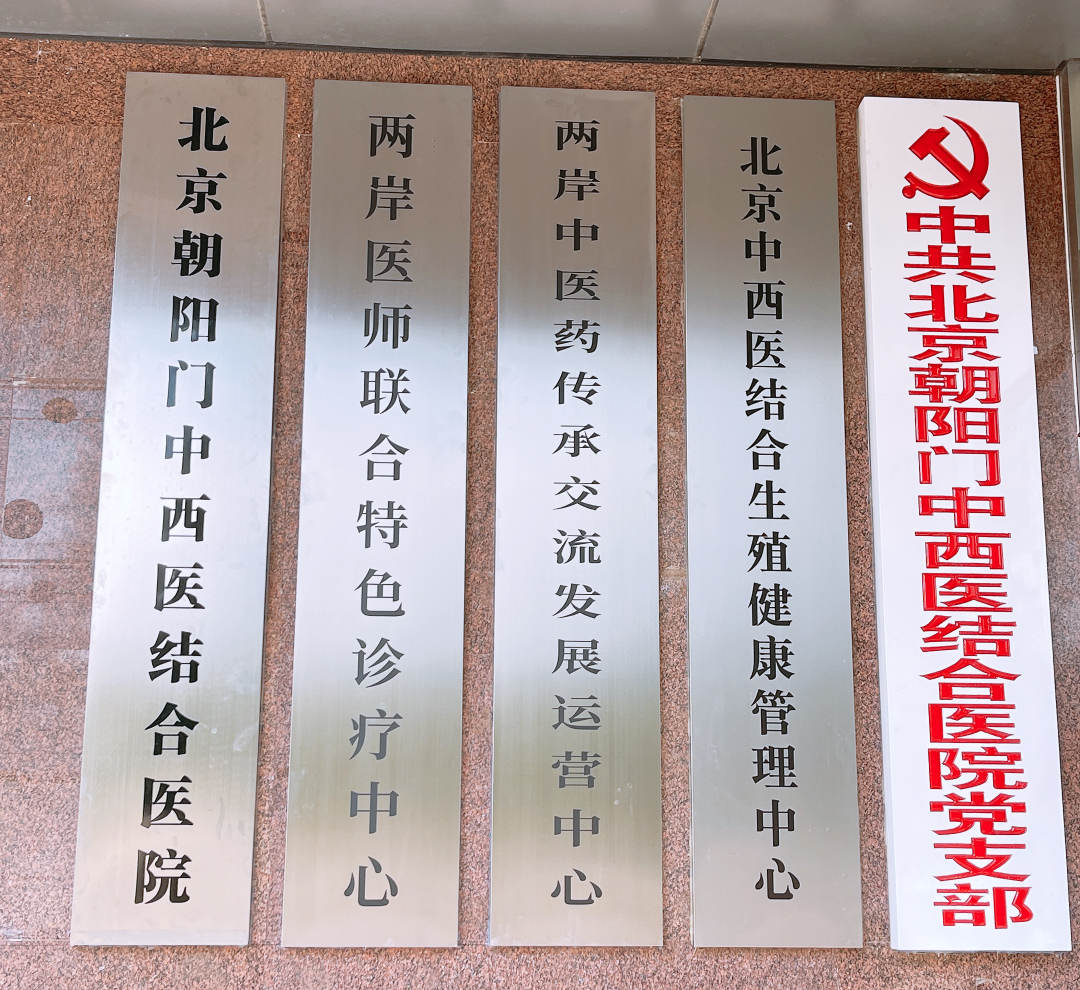 北京朝阳门中西医结合医院
两岸医师联合特色诊疗中心
两岸中医药传承交流发展运营中心
北京中西医结合生殖健康管理中心
中共北京朝阳门中西医结合医院党支部